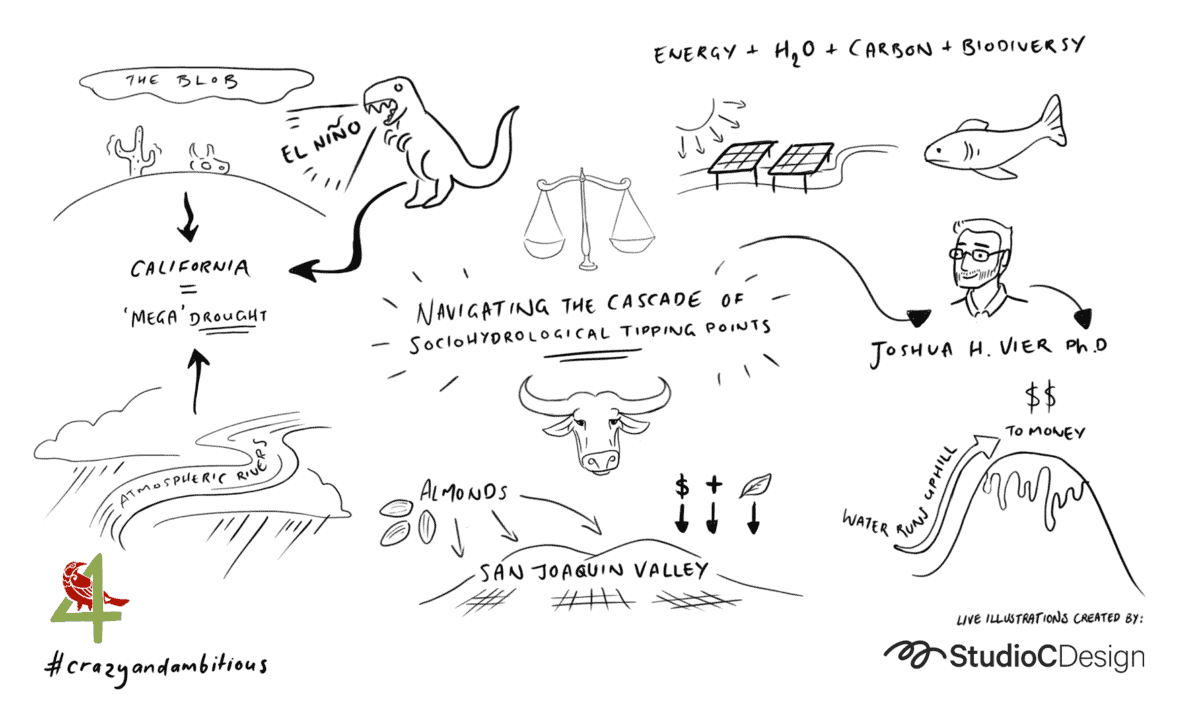 THE BLOB
EL NIÑO
CALIFORNIA
=
'MEGA' DROUGHT
ATMOSPHERIC RIVERS
ENERGY + H₂O + CARBON + BIODIVERSY
NAVIGATING THE CASCADE OF
SOCIOHYDROLOGICAL TIPPING POINTS
JOSHUA H. VIER Ph.D
$$
TO MONEY
WATER RUNS UPHILL
ALMONDS
$ +
SAN JOAQUIN VALLEY
4
#crazyandambitious
LIVE ILLUSTRATIONS CREATED BY:
StudioCDesign